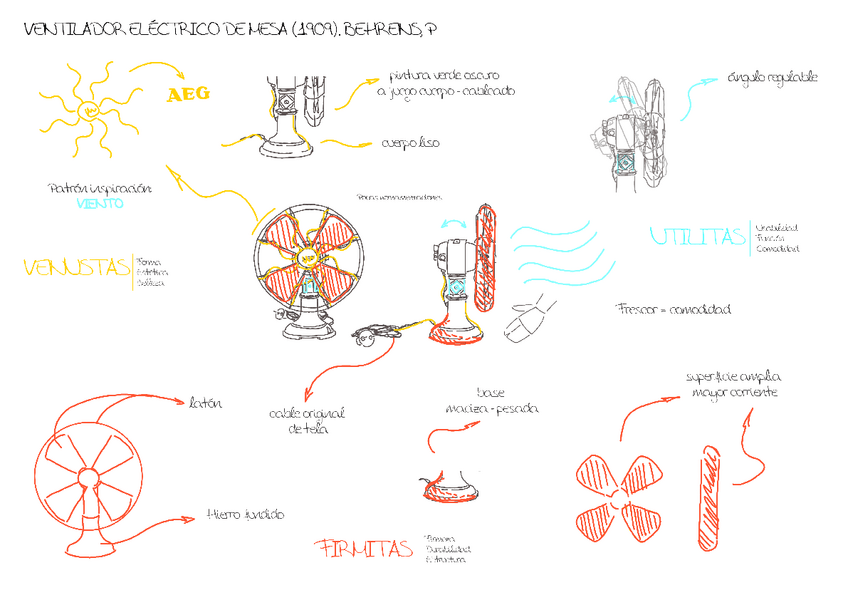 VENTILADOR ELÉCTRICO DE MESA (1909). BEHRENS, P
AEG
pintura verde oscuro
a juego cuerpo - cableado
cuerpo liso
ángulo regulable
Patrón inspiración:
VIENTO
VENUSTAS
Forma
Estética
Belleza
UTILITAS
Usabilidad
Función
Comodidad
Frescor = comodidad
latón
cable original
de tela
base
maciza - pesada
superficie amplia
mayor corriente
Hierro fundido
FIRMITAS
Firmeza
Durabilidad
Estructura